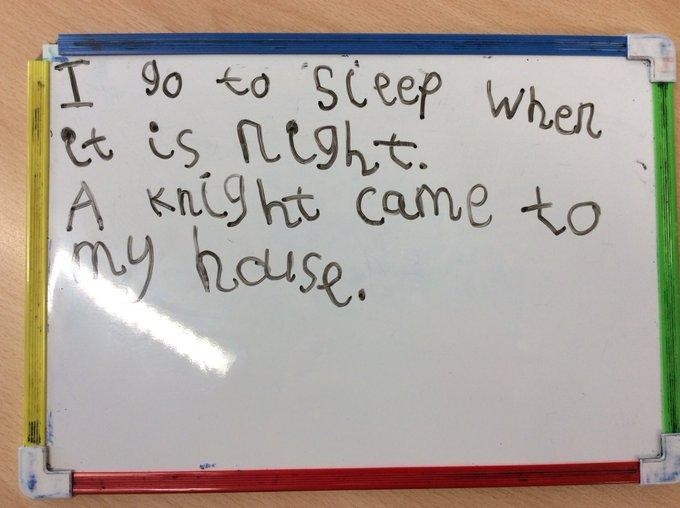 I go to sleep when
it is night.
A knight came to
my house.